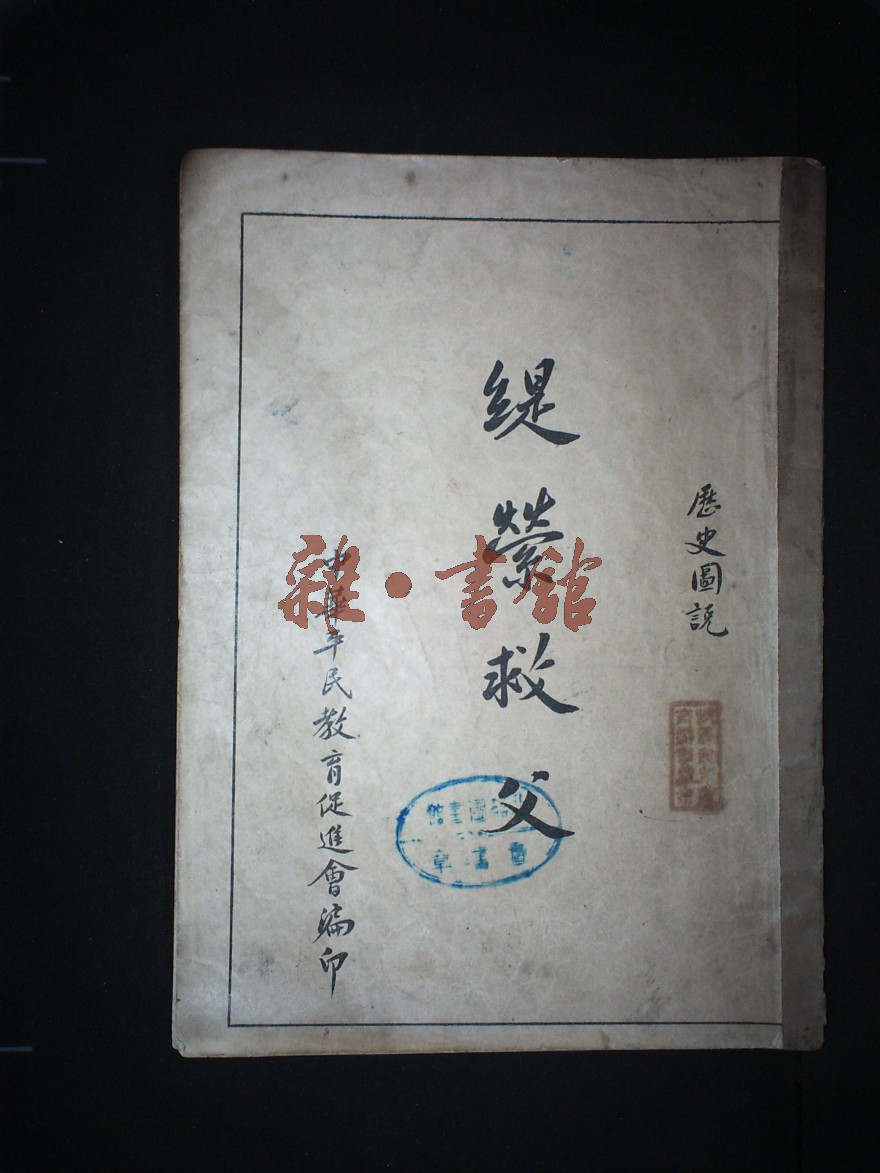 歷史圖說
緹縈救父
中華平民教育促進會編印
雜·書館